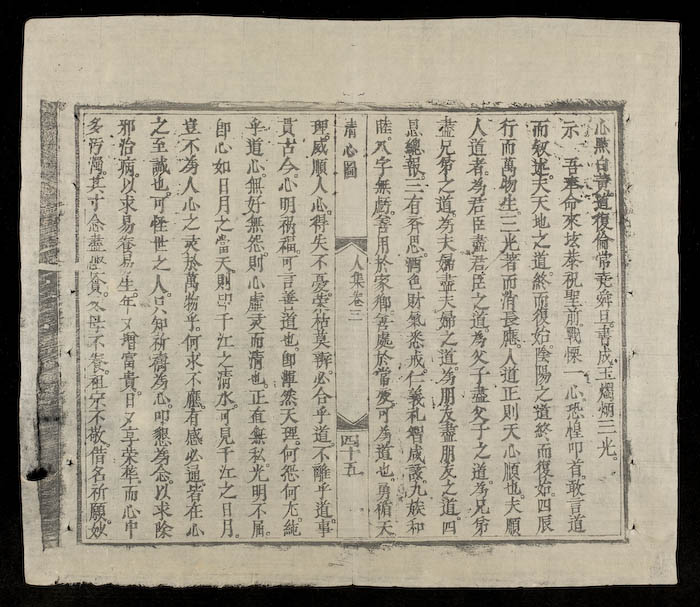 心點白青道復倫常堯舜旦書成玉燭炳三光
示 吾奉命來垓恭祝聖前戰慄一心恐惶叩首敢言道
而叙述夫天地之道終而復始陰陽之道終而復始四辰
行而萬物生三光著而消長應人道正則天心順也夫順
人道者為君臣盡君臣之道為父子盡父子之道為兄弟
盡兄弟之道為夫婦盡夫婦之道為朋友盡朋友之道四
恩總報三有齊思酒色財氣悉戒仁義礼智咸該九族和
睦八字無虧善用於家鄉善處於常變可為道也勇循天
清心圖
人集卷三
四十五
理威順人心得失不憂榮枯莫辨必合乎道不離乎道事
貫古今心明禍福可言善道也即渾然天理何怨何尤純
乎道心無好無怨則心虛灵而清也正直無私光明不屑
即心如日月之當天則印千江之清水可見千江之日月
豈不為人心之灵於萬物乎何求不應有感必通皆在心
之至誠也可怪世之人只知祈齋為心叩懇為念以求除
邪治病以求易養易生年又增富貴日又享榮華而心中
多污濁其寸念盡慳貪父母不養祖宗不敬借名祈願妙